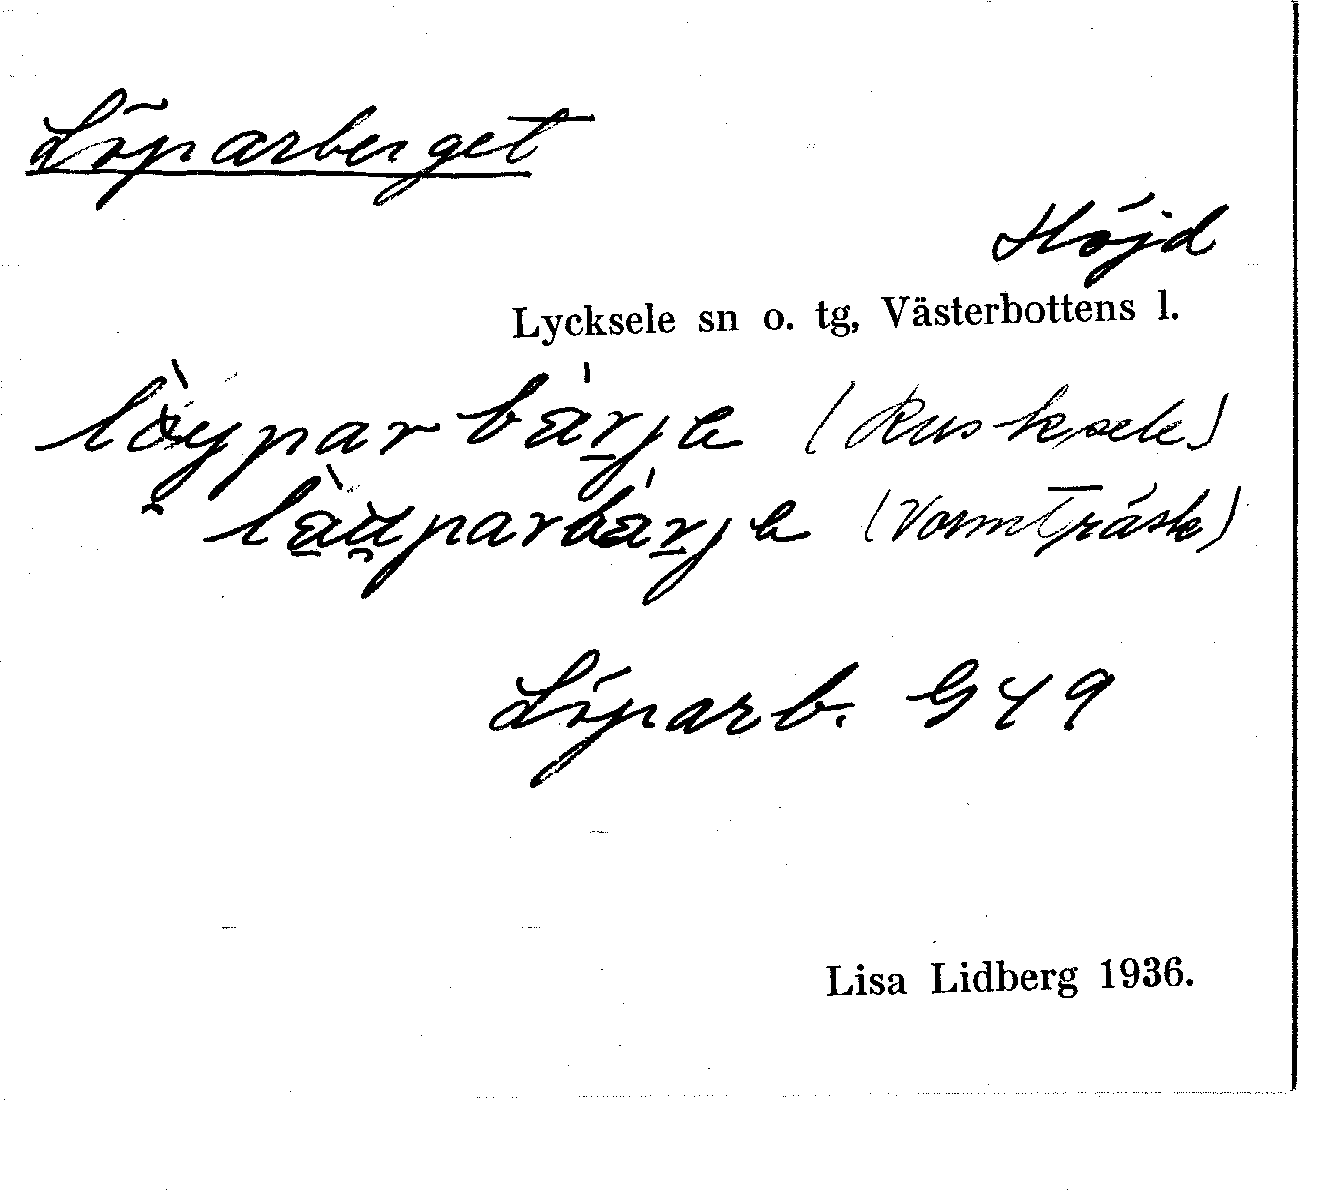 Löparberget
Höjd
Lycksele sn o. tg, Västerbottens l.
lòyparbárje (Rusksele)
làu̯parbárje (Vormträsk)
Löparb. G49
Lisa Lidberg 1936.